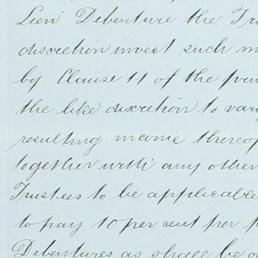 Lien Debenture the Tru
discretion invest such m
by Clause 11 of the prin
the like discretion to vary
resulting income thereof
together with any other
Trustees to be applicable
to pay 10 per cent per
Debentures as shall be